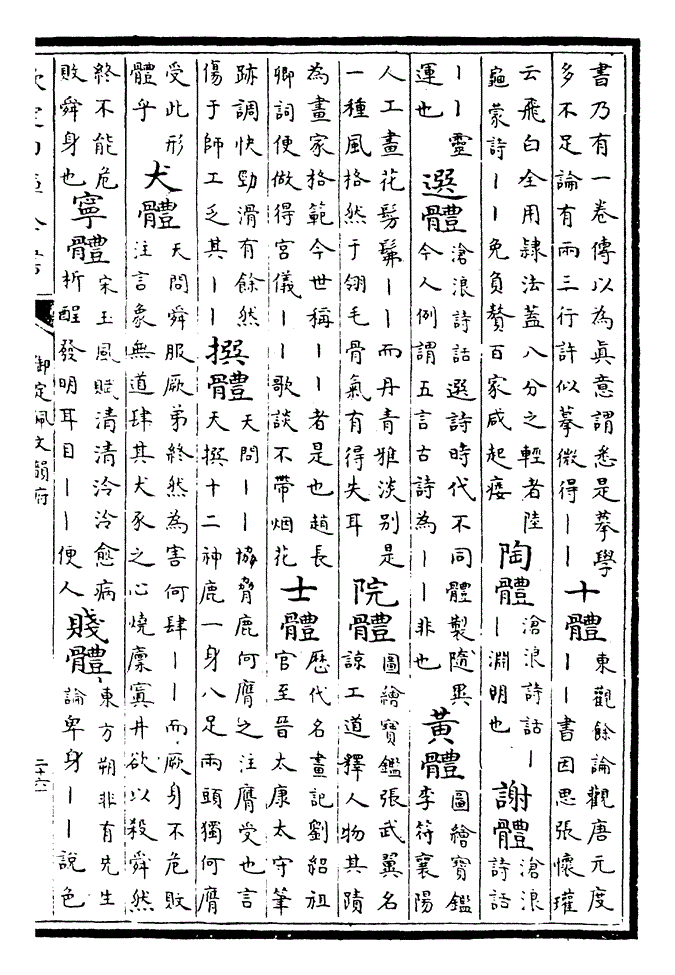 書乃有一卷傳以為真意謂悉是摹學
多不足論有兩三行許似摹微得｜｜
十體
東觀餘論觀唐元度
｜｜書因思張懷瓘
云飛白全用隸法蓋八分之輕者陸
龜蒙詩｜｜免負贅百家咸起痿
陶體
滄浪詩話｜
｜淵明也
謝體
滄浪
詩話
｜｜靈
運也
選體
滄浪詩話選詩時代不同體製隨異
今人例謂五言古詩為｜｜非也
黃體
圖繪寶鑑
李符襄陽
人工畫花髣髴｜｜而丹青雅淡別是
一種風格然于翎毛骨氣有得失耳
院體
圖繪寶鑑張武翼名
諒工道釋人物其蹟
為畫家格範今世稱｜｜者是也趙長
卿詞便做得宮儀｜｜歌談不帶烟花
士體
歷代名畫記劉紹祖
官至晉太康太守筆
跡調快勁滑有餘然
傷于師工乏其｜｜
撰體
天問｜｜協脅鹿何膺之注膺受也言
天撰十二神鹿一身八足兩頭獨何膺
受此形
體乎
犬體
天問舜服厥弟終然為害何肆｜｜而厥身不危敗
注言象無道肆其犬豕之心燒廩窴井欲以殺舜然
終不能危
敗舜身也
寧體
宋玉風賦清清泠泠愈病
析酲發明耳目｜｜便人
賤體
東方朔非有先生
論卑身｜｜說色
欽定四庫全書
御定佩文韻府
二十六